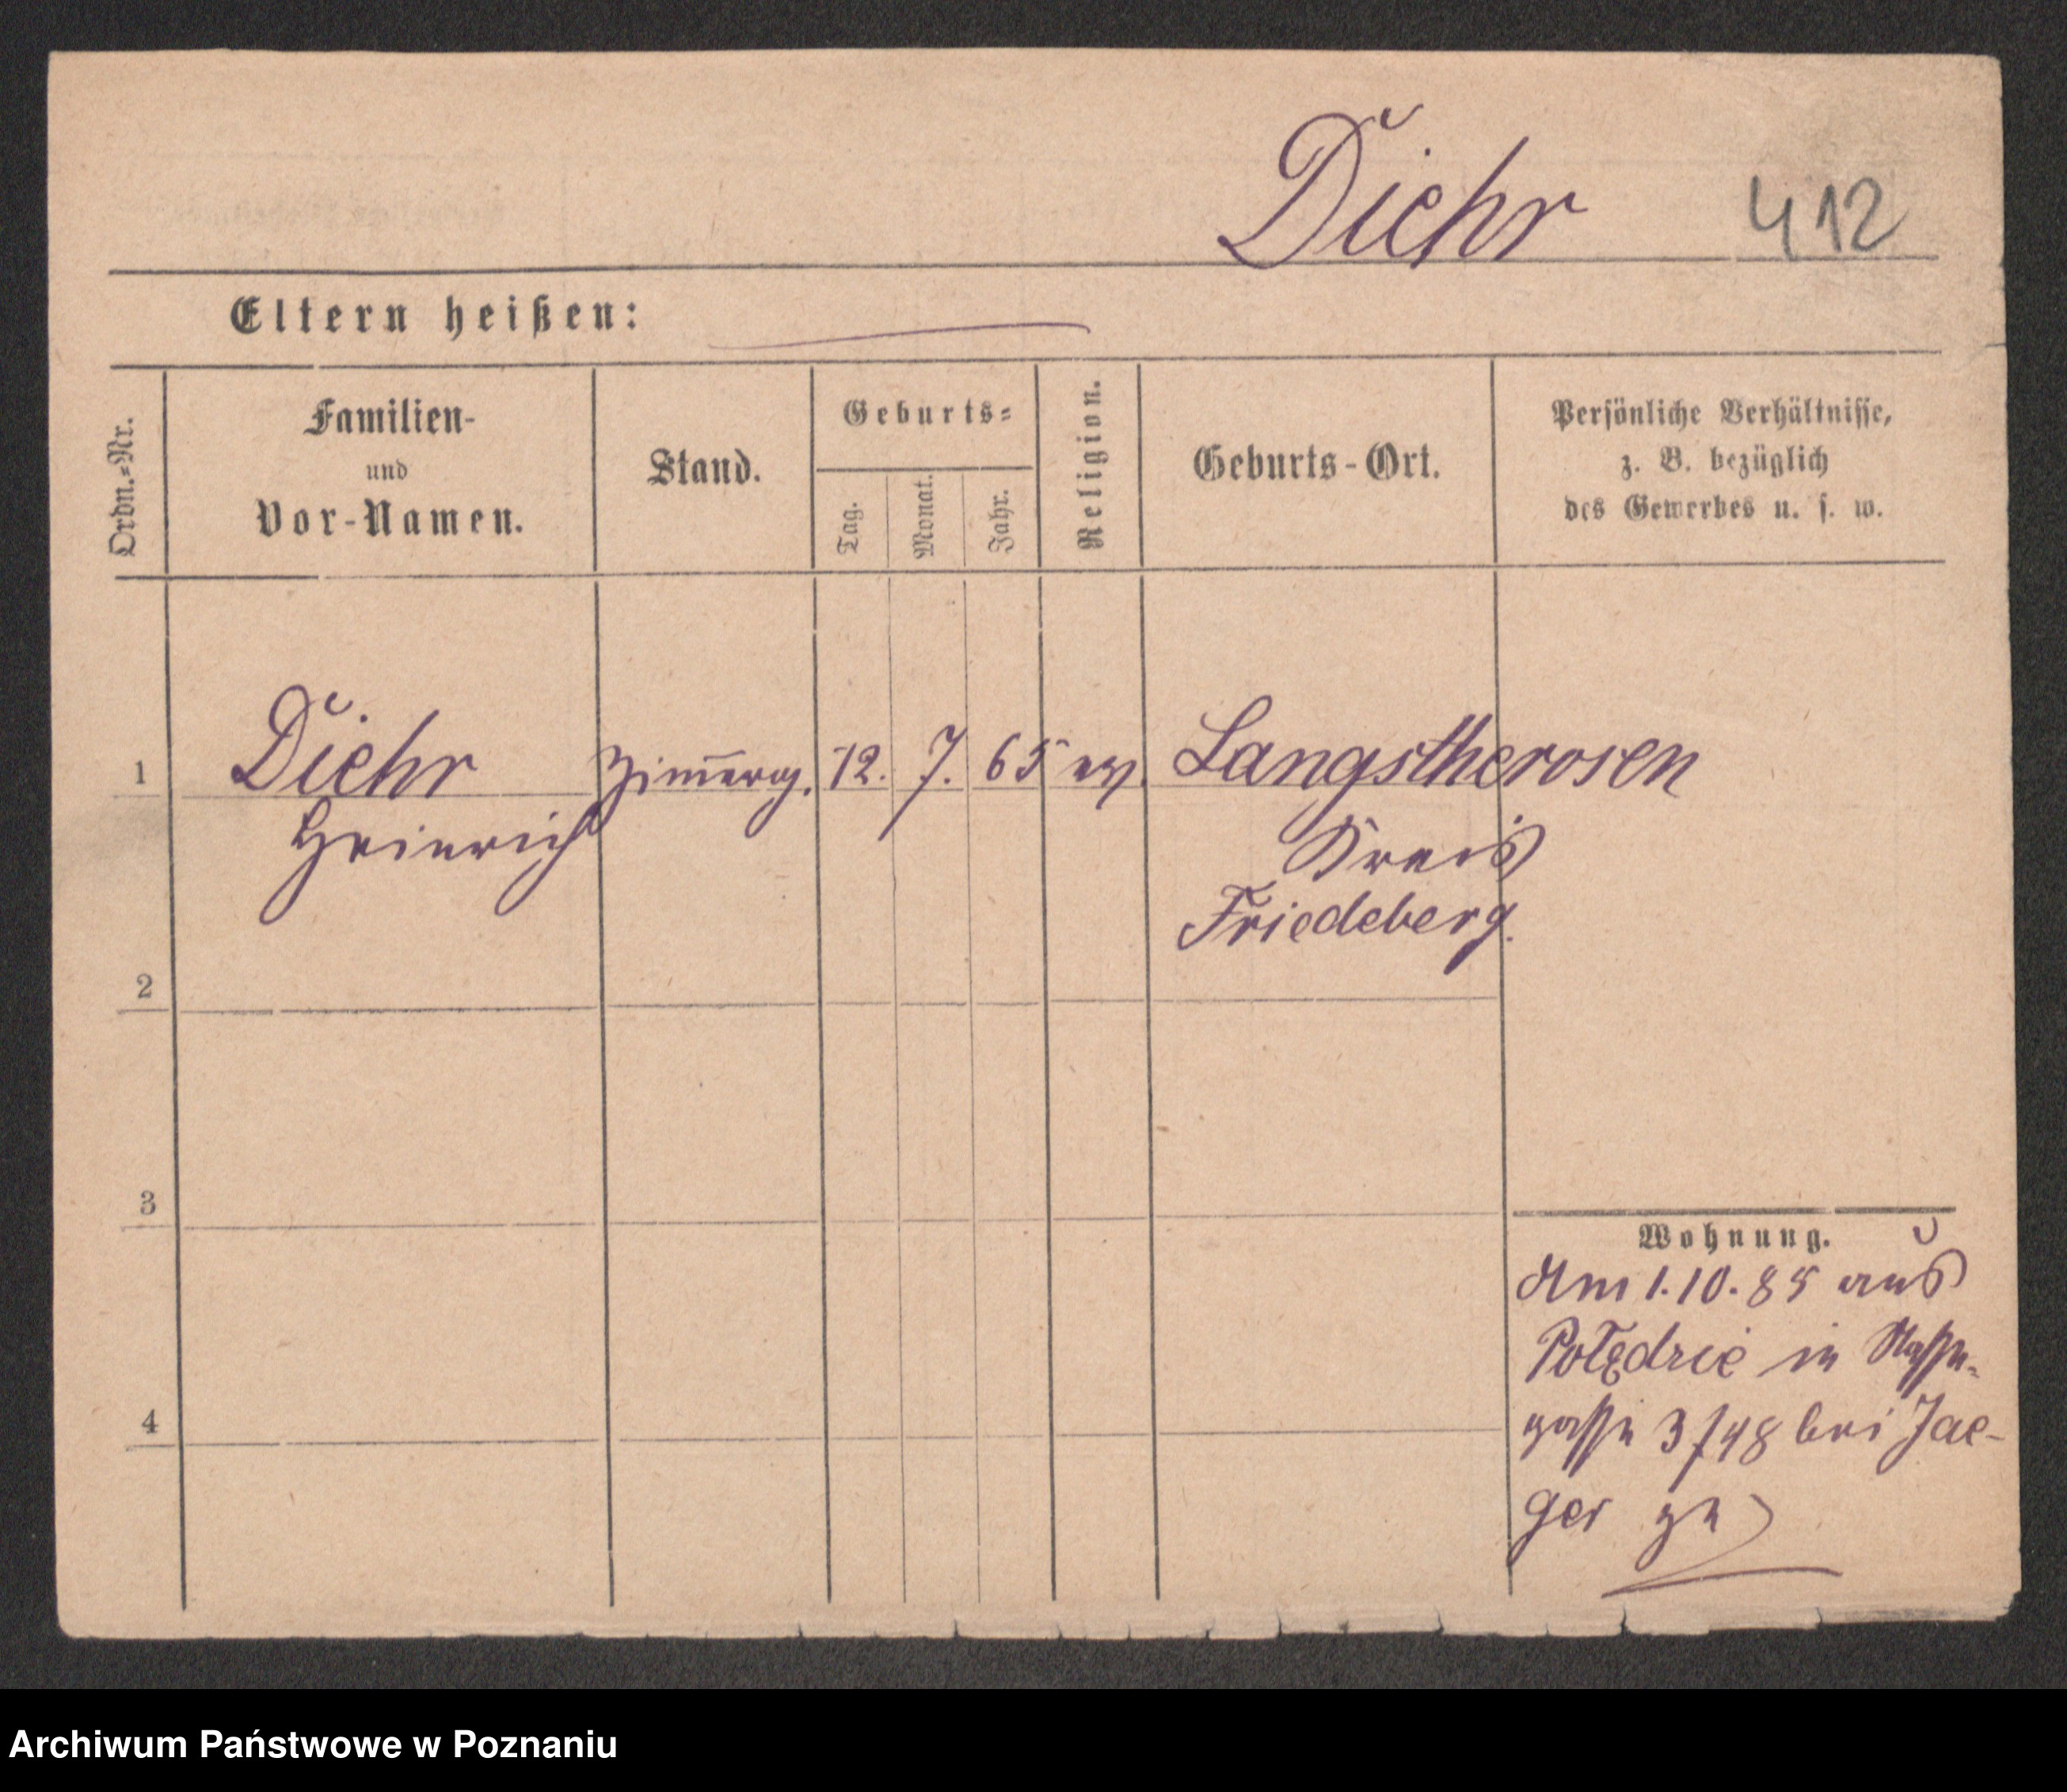 Diehr 412
Eltern heißen:
Ordn.=Nr.
Familien-
und
Vor-Namen.
Stand.
Geburts=
Tag.
Monat.
Jahr.
Religion.
Geburts-Ort.
Persönliche Verhältnisse,
z. B. bezüglich
des Gewerbes u. s. w.
1 Diehr Zim̄erg. 12. 7. 65 ev. Langstherosen
Heinrich Kreis
Friedeberg.
2
3
4
Wohnung.
Am 1.10.85 aus
in
gasse 3/48 bei Jae-
ger
Archiwum Państwowe w Poznaniu